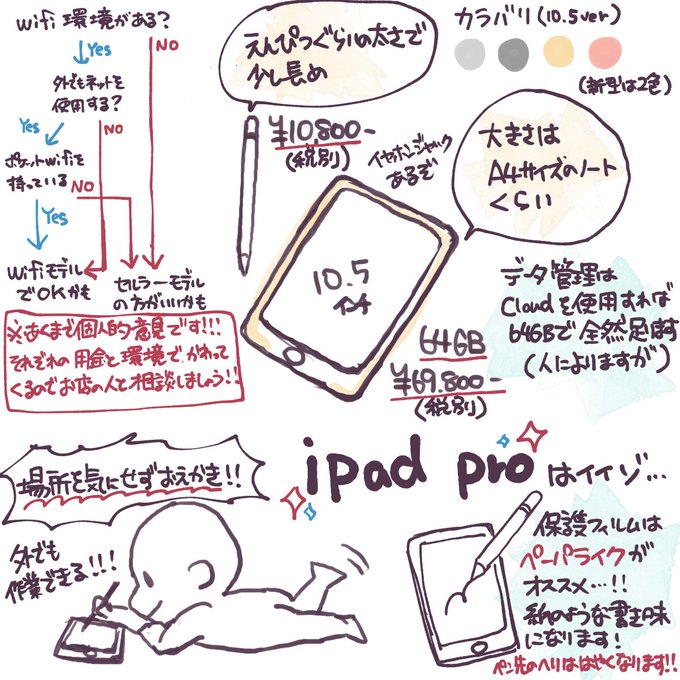 wifi 環境がある？
Yes
NO
外でもネットを
使用する？
Yes
NO
ポケットwifiを
持っている
NO
Yes
wifiモデル
でOKかも
セルラーモデル
の方がいいかも
※あくまで個人的意見です!!!
それぞれの用金と環境でかわって
くるのでお店の人と相談しましょう!!
えんぴつぐらいの太さで
少し長め
¥10,800-
(税別)
カラバリ(10.5ver)
(新型は2色)
イヤホンジャック
あるぞ
大きさは
A4サイズのノート
くらい
10.5
インチ
64GB
¥69.800-
(税別)
データ管理は
Cloudを使用すれば
64GBで全然足ります
(人によりますが)
ipad proはイイゾ…
場所を気にせずおえかき!!
外でも
作業できる!!!
保護フィルムは
ペーパライクが
オススメ…!!
紙のような書き味
になります!
ペン先のヘリははやくなります!!